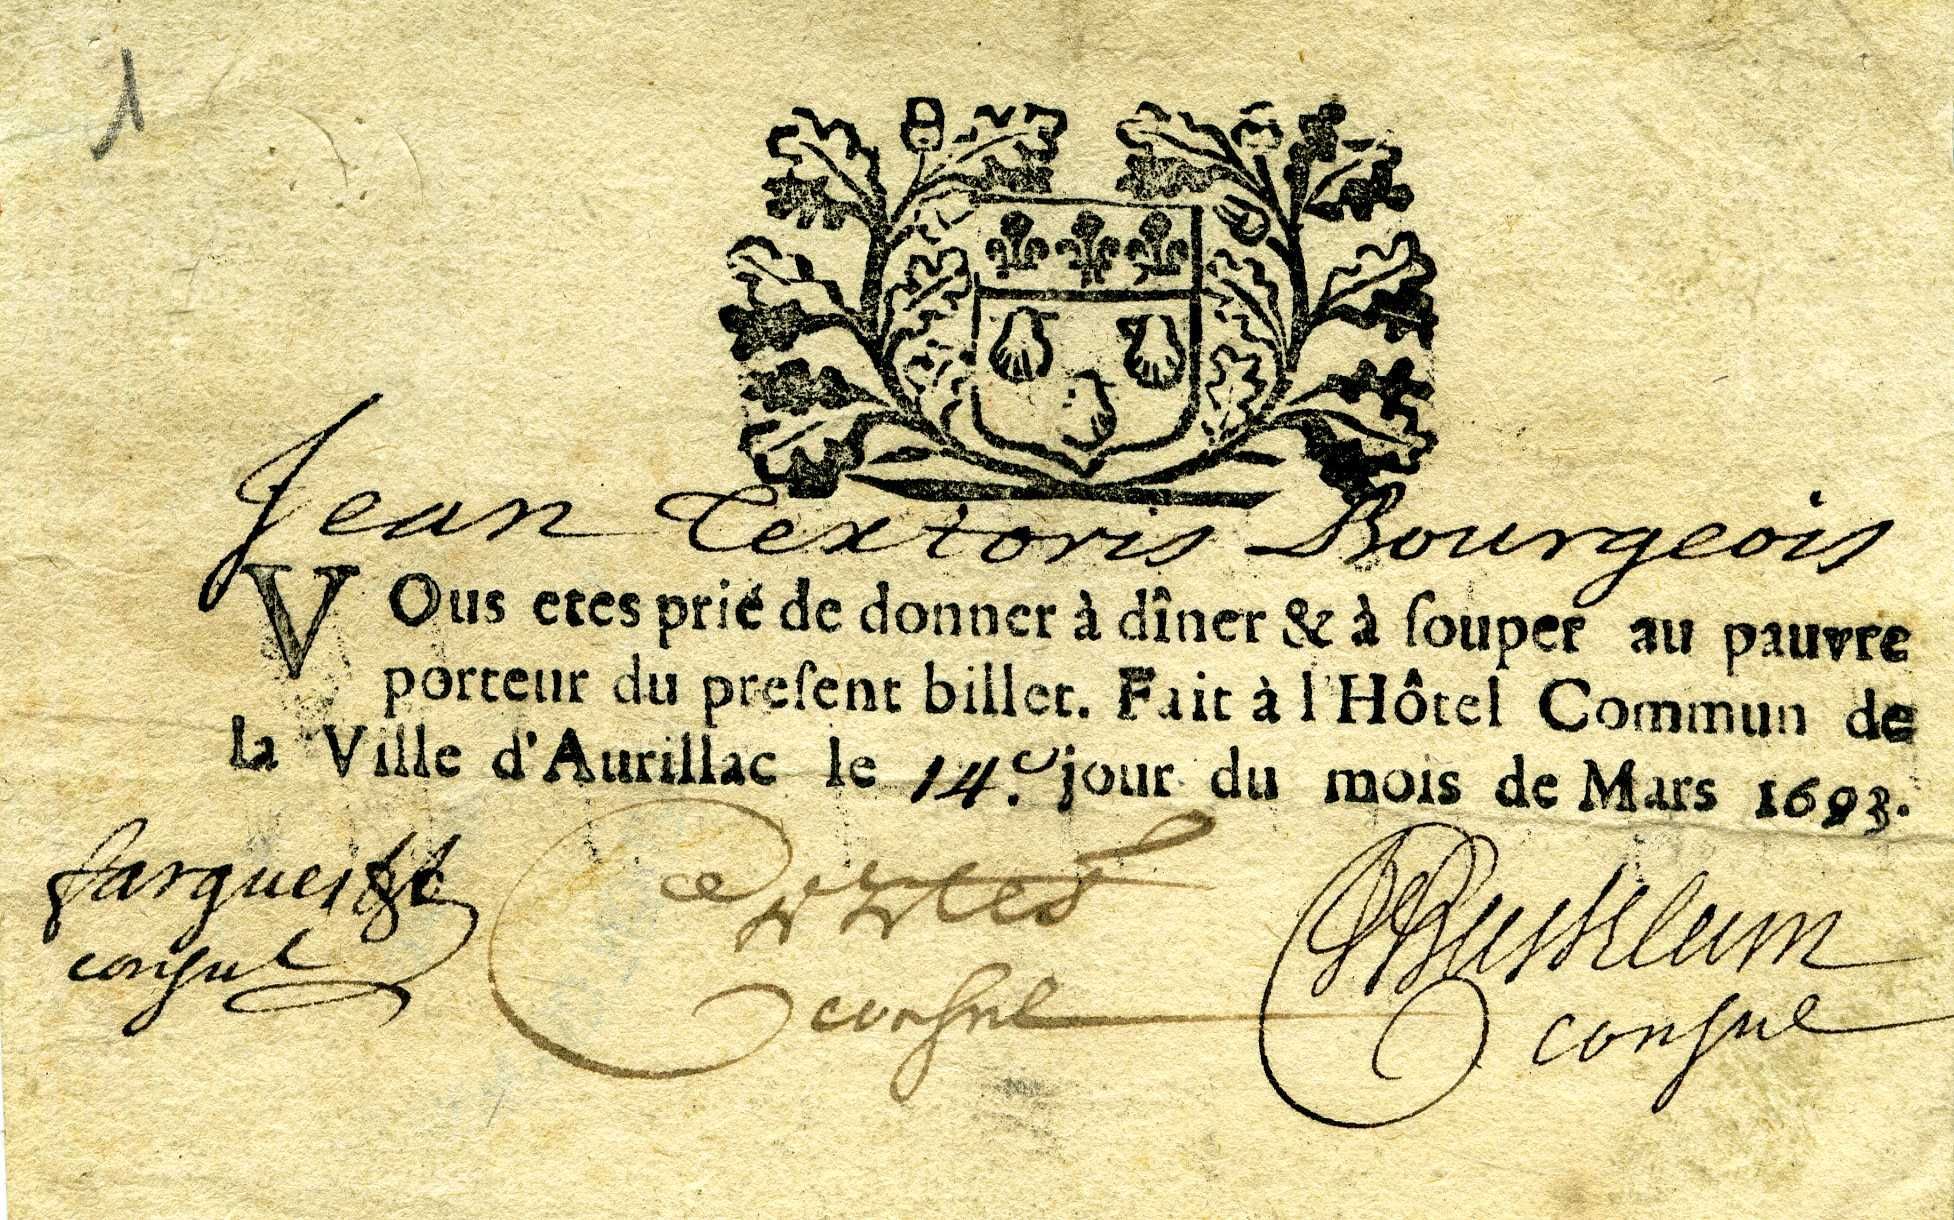 1
Jean Textoris Bourgeois
VOus etes prié de donner à dîner & à ſouper au pauvre
porteur du preſent billet. Fait à l'Hôtel Commun de
la Ville d'Aurillac le 14.e jour du mois de Mars 1693.
consul consul consul